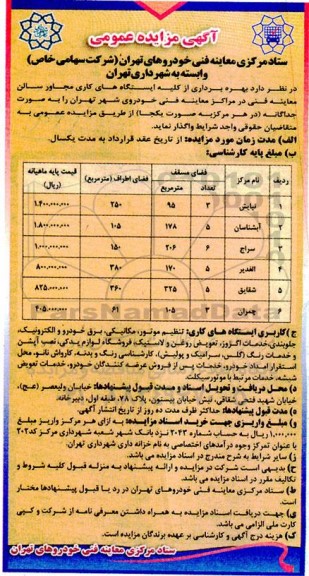 آگهی مزایده عمومی
ستاد مرکزی معاینه فنی خودروهای تهران (شرکت سهامی خاص)
وابسته به شهرداری تهران
در نظر دارد بهره برداری از کلیه ایستگاه های کاری مجاور سالن
معاینه فنی در مراکز معاینه فنی خودروی شهر تهران را به صورت
جداگانه (در هر مرکز به صورت یکجا) از طریق مزایده عمومی به
متقاضیان حقوقی واجد شرایط واگذار نماید.
الف) مدت زمان مورد مزایده: از تاریخ عقد قرارداد به مدت یکسال.
ب) مبلغ پایه کارشناسی:
ردیف نام مرکز فضای مسقف فضای اطراف (مترمربع) قیمت پایه ماهیانه (ریال)
تعداد مترمربع
۱ نیایش ۳ ۹۵ ۲۵۰ ۱.۴۰۰.۰۰۰.۰۰۰
۲ آبشناسان ۵ ۱۷۸ ۱۰۵ ۱.۸۰۰.۰۰۰.۰۰۰
۳ سراج ۶ ۲۰۶ ۱۵۰ ۱.۰۰۰.۰۰۰.۰۰۰
۴ الغدیر ۵ ۱۷۰ ۳۸۰ ۸۰۰.۰۰۰.۰۰۰
۵ شقایق ۵ ۳۲۵ ۳۶۰ ۸۲۵.۰۰۰.۰۰۰
۶ چمران ۳ ۱۰۵ ۶۱ ۴۰۵.۰۰۰.۰۰۰
ج) کاربری ایستگاه های کاری: تنظیم موتور، مکانیکی، برق خودرو و الکترونیک،
جلوبندی، خدمات اگزوز، تعویض روغن و لاستیک، فروشگاه لوازم یدکی، نصب آپشن
و خدمات رنگ (گلس، سرامیک و پولیش)، کارشناسی رنگ و بدنه، کارواش نانو، محل
استقرار امداد خودرو، خدمات پس از فروش عرضه کنندگان خودرو، خدمات تعویض
شیشه، خدمات مرتبط با موتورسیکلت
د) محل دریافت و تحویل اسناد و مدت قبول پیشنهادها: خیابان ولیعصر (عج)،
خیابان شهید فتحی شقاقی، نبش خیابان بیستون، پلاک ۷۸، طبقه اول، دبیرخانه.
ه) مدت قبول پیشنهادها: حداکثر ظرف مدت ده روز از تاریخ انتشار آگهی.
و) مبلغ واریزی جهت خرید اسناد مزایده: به ازای هر مرکز واریز مبلغ
۱.۰۰۰.۰۰۰ ریال به حساب شماره ۲۰۲۳ نزد بانک شهر شعبه شهرداری مرکز کد۲۰۲
با عنوان تمرکز وجوه درآمدهای اختصاصی به نام خزانه داری شهرداری تهران.
ز) سایر شرایط به شرح مندرج در اسناد مزایده می باشد.
ح) بدیهی است شرکت در مزایده و ارائه پیشنهاد به منزله قبول کلیه شروط و
تکالیف مقرر در اسناد مزایده می باشد.
ط) ستاد مرکزی معاینه فنی خودروهای تهران در رد یا قبول پیشنهادها مختار
است.
ی) جهت دریافت اسناد مزایده به همراه داشتن معرفی نامه از شرکت و کپی
کارت ملی الزامی می باشد.
ک) هزینه درج آگهی و کارشناسی بر عهده برندگان مزایده است.
ستاد مرکزی معاینه فنی خودروهای تهران